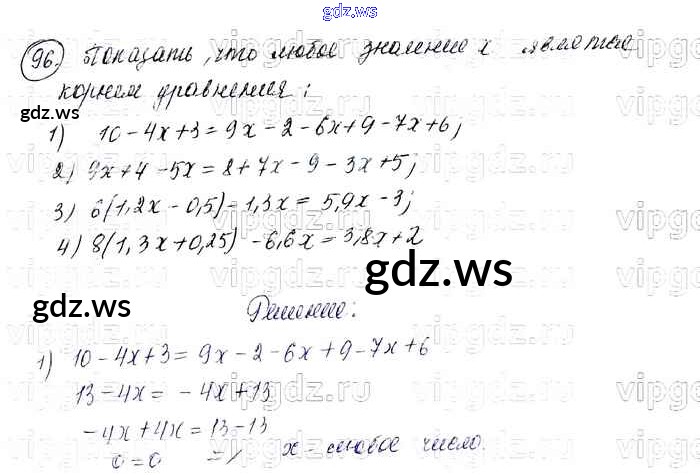 gdz.ws
96. Показать, что любое значение x является
корнем уравнения:
1) 10 - 4x + 3 = 9x - 2 - 6x + 9 - 7x + 6;
2) 9x + 4 - 5x = 8 + 7x - 9 - 3x + 5;
3) 6(1,2x - 0,5) - 1,3x = 5,9x - 3;
4) 8(1,3x + 0,25) - 6,6x = 3,8x + 2
gdz.ws
gdz.ws
gdz.ws
Решение:
1) 10 - 4x + 3 = 9x - 2 - 6x + 9 - 7x + 6
13 - 4x = - 4x + 13
- 4x + 4x = 13 - 13
0 = 0 => x - любое число.